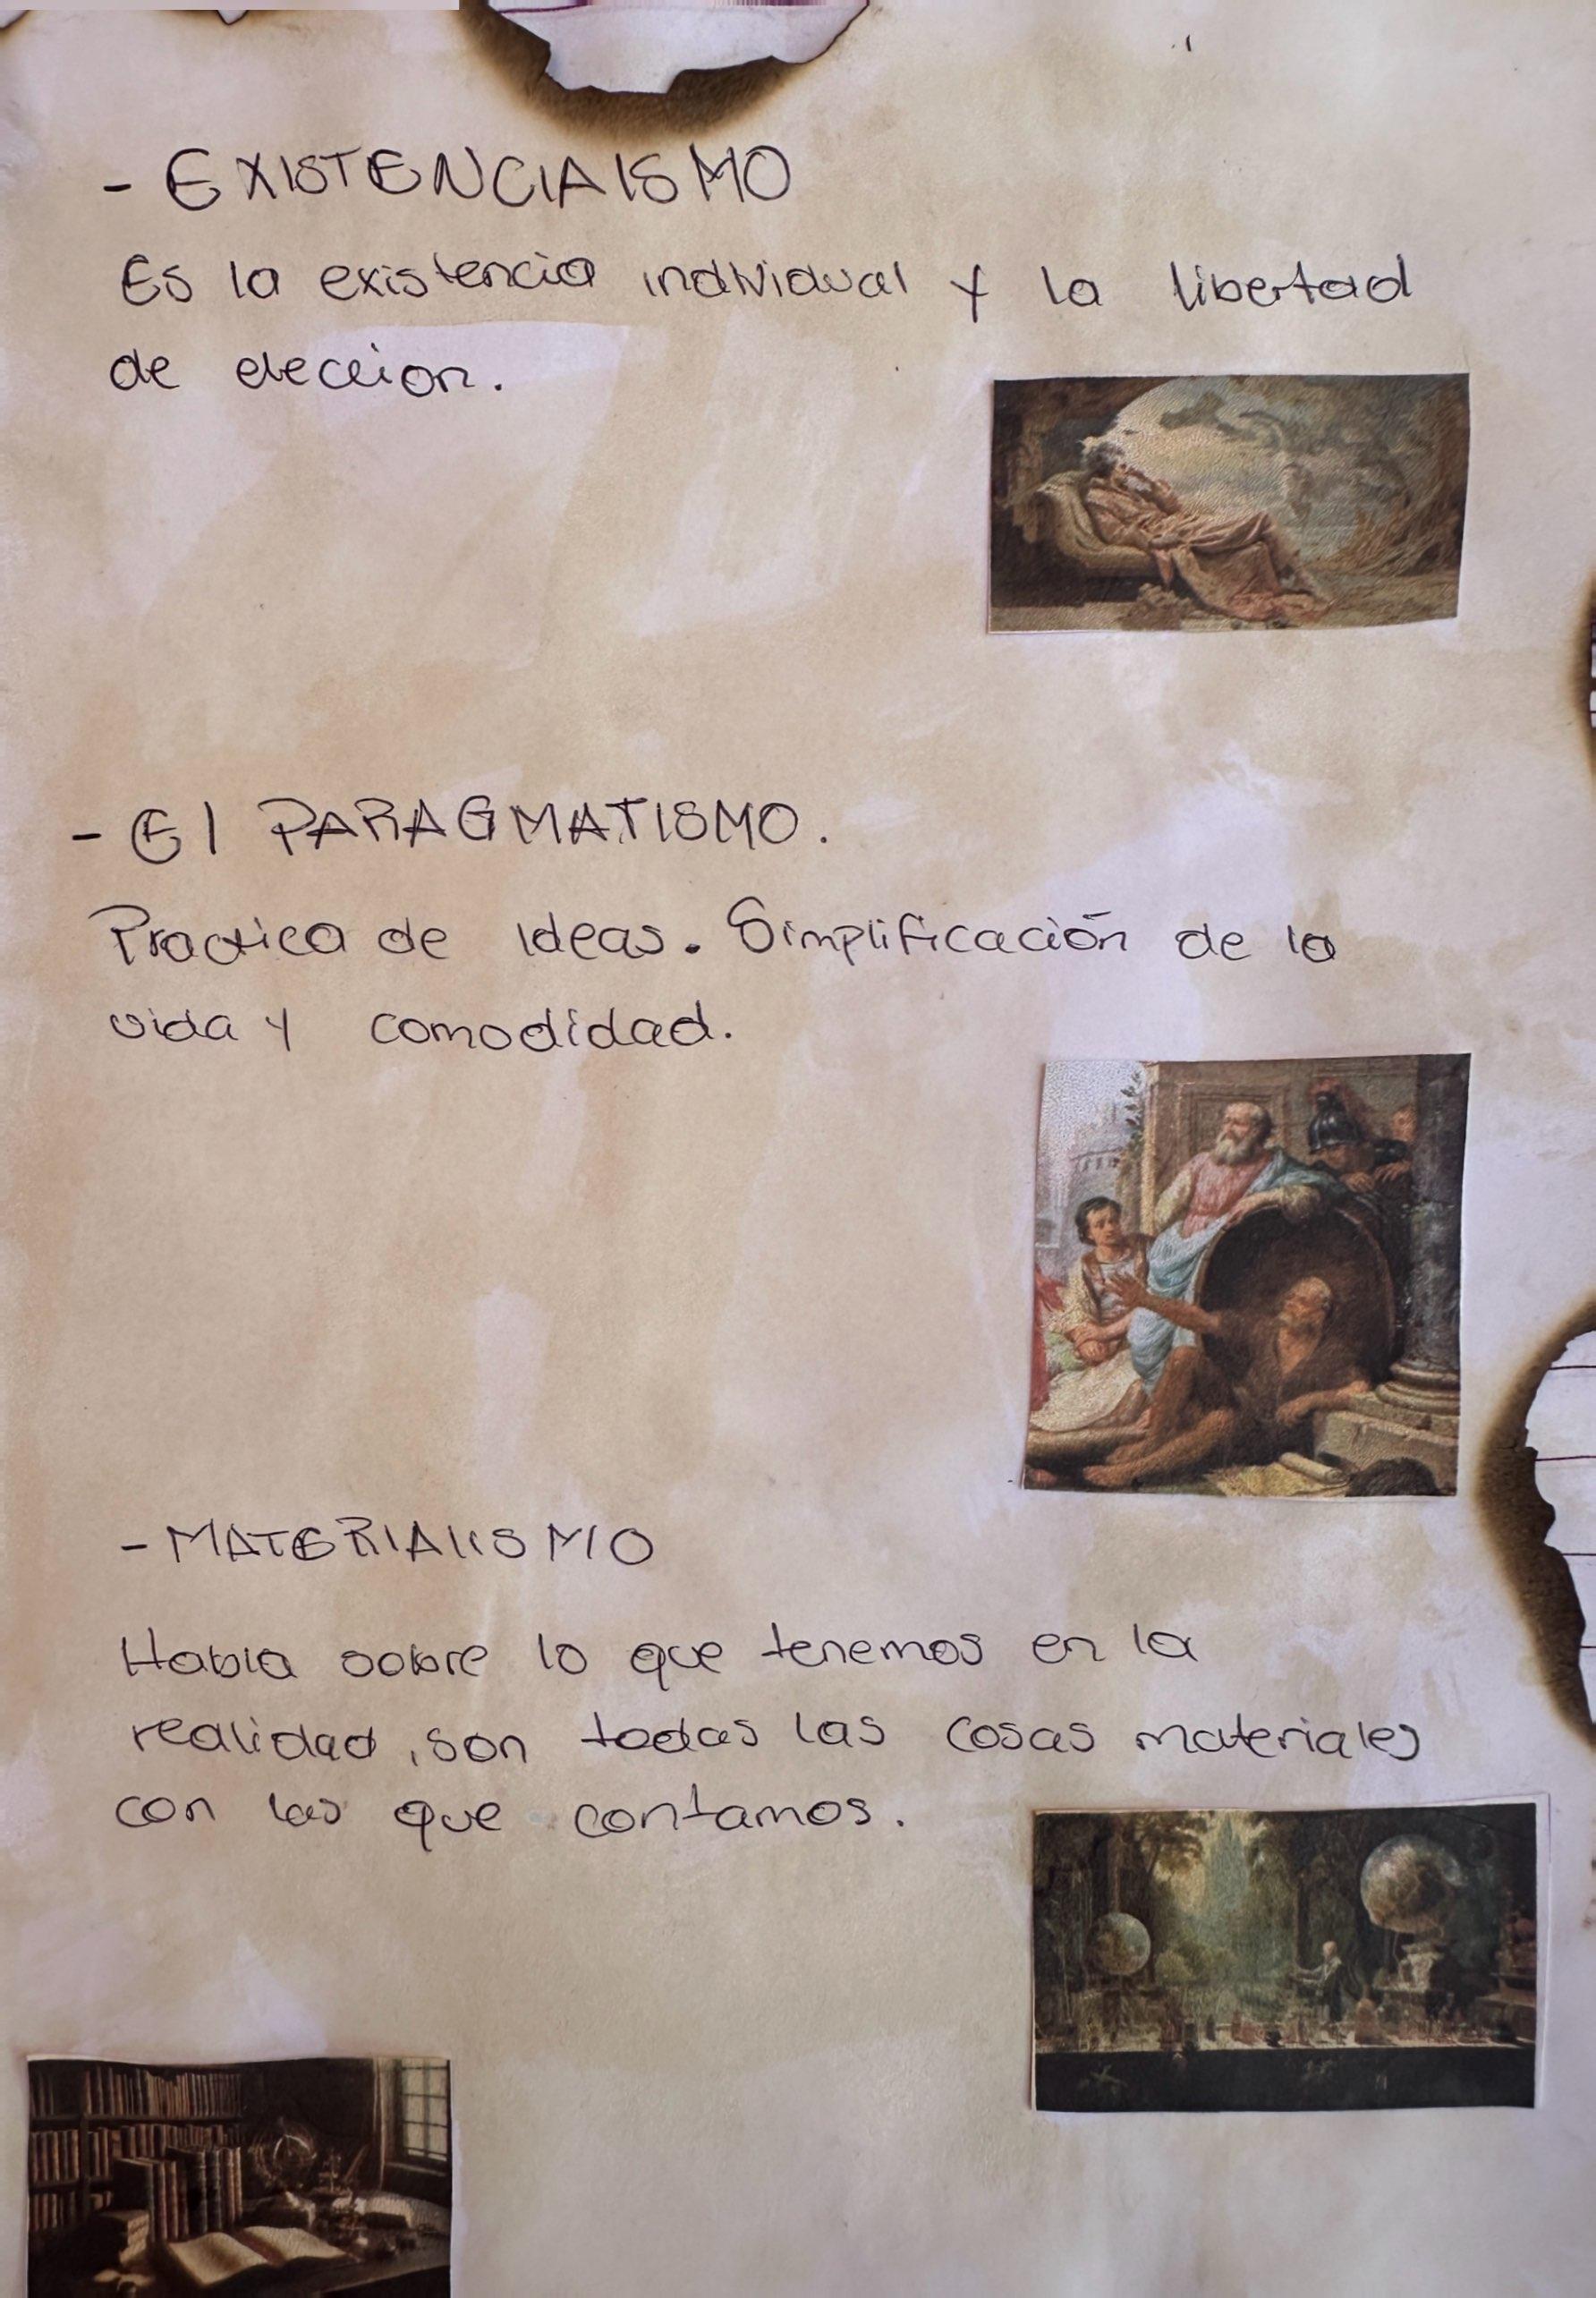 - EXISTENCIAISMO
Es la existencia individual y la libertad
de eleccion.
- El PARAGMATISMO.
Practica de ideas. Simplificación de la
vida y comodidad.
- MATERIAlISMO
Habla sobre lo que tenemos en la
realidad, son todas las cosas materiales
con las que contamos.